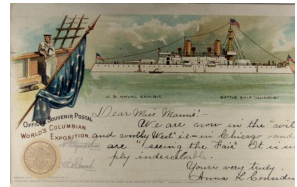 U.S. NAVAL EXHIBIT.
BATTLE SHIP "ILLINOIS"
OFFICIAL SOUVENIR POSTAL
WORLD'S COLUMBIAN
EXPOSITION
Dear Miss Mamie:-
We are now in the "wild
and woolly West" seein Chicago and
are "seeing the Fair" It is
ply indescribable.
Yours very truly,
Anna L.